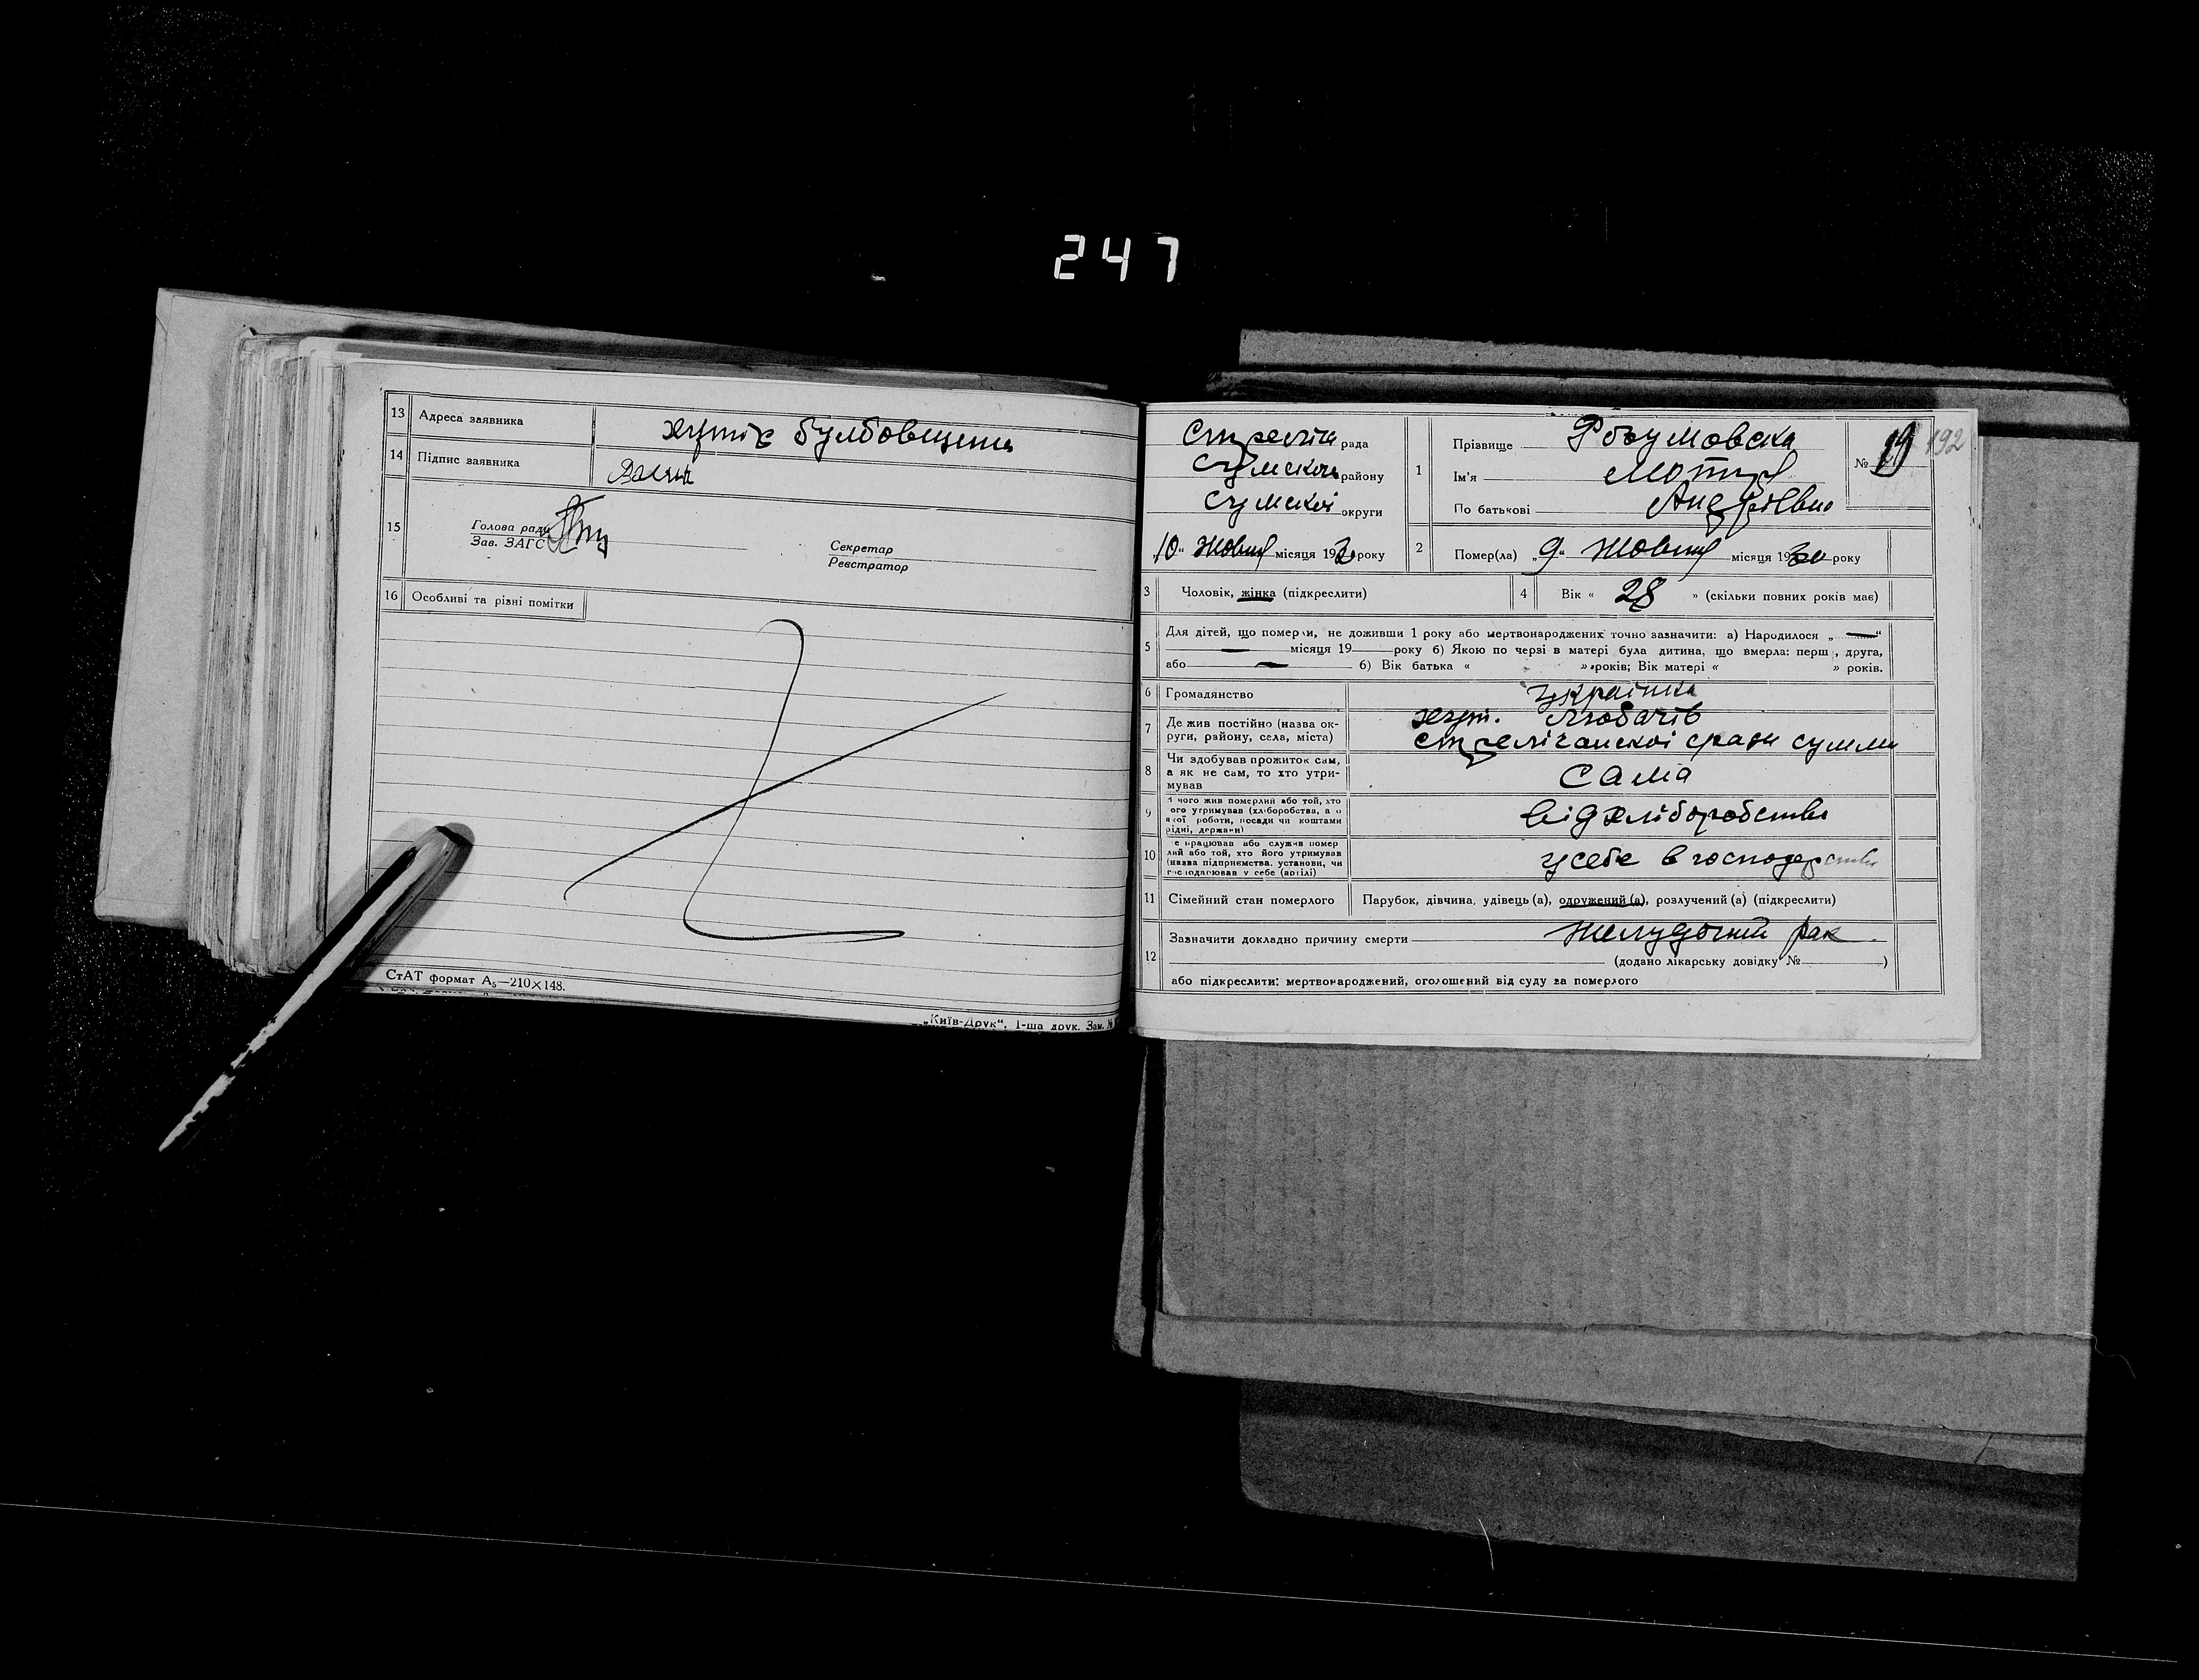 247
13 Адреса заявника хутіс булбовщина
14 Підпис заявника
15 Голова ради
Зав. ЗАГС
Секретар
Реєстратор
16 Особливі та різні помітки
СтАТ формат А₅—210×148.
„Київ-Друк“. 1-ша друк. Зам. №
рада
Сумской району
Сумскої округи
„10“ Жовтн місяця 1930 року
1 Прізвище Розумовска
Ім'я Мотря
По батькові Андріївна
№ 19 192
2 Помер(ла) „9“ Жовтн місяця 1930 року
3 Чоловік, жінка (підкреслити)
4 Вік « 28 » (скільки повних років має)
5 Для дітей, що померли, не доживши 1 року або мертвонароджених точно зазначити: а) Народилося „ — “
— місяця 19 року б) Якою по черзі в матері була дитина, що вмерла: перша, друга,
або — б) Вік батька « » років; Вік матері « » років.
6 Громадянство українка
7 Де жив постійно (назва ок-
руги, району, села, міста)
хут. Любачів
стрелічанскої сради
8 Чи здобував прожиток сам,
а як не сам, то хто утри-
мував
сама
9 З чого жив померлий або той, хто
його утримував (хліборобства, а о
якої роботи, посади чи коштами
рідні, держави)
від хліборобства
10 Де працював або служив помер
лий або той, хто його утримував
(назва підприємства, установи, чи
господарював у себе (артілі)
усебе в господарстві
11 Сімейний стан померлого Парубок, дівчина, удівець (а), одружений (а), розлучений (а) (підкреслити)
12 Зазначити докладно причину смерти Желудочний рак
(додано лікарську довідку № )
або підкреслити: мертвонароджений, оголошений від суду за померлого